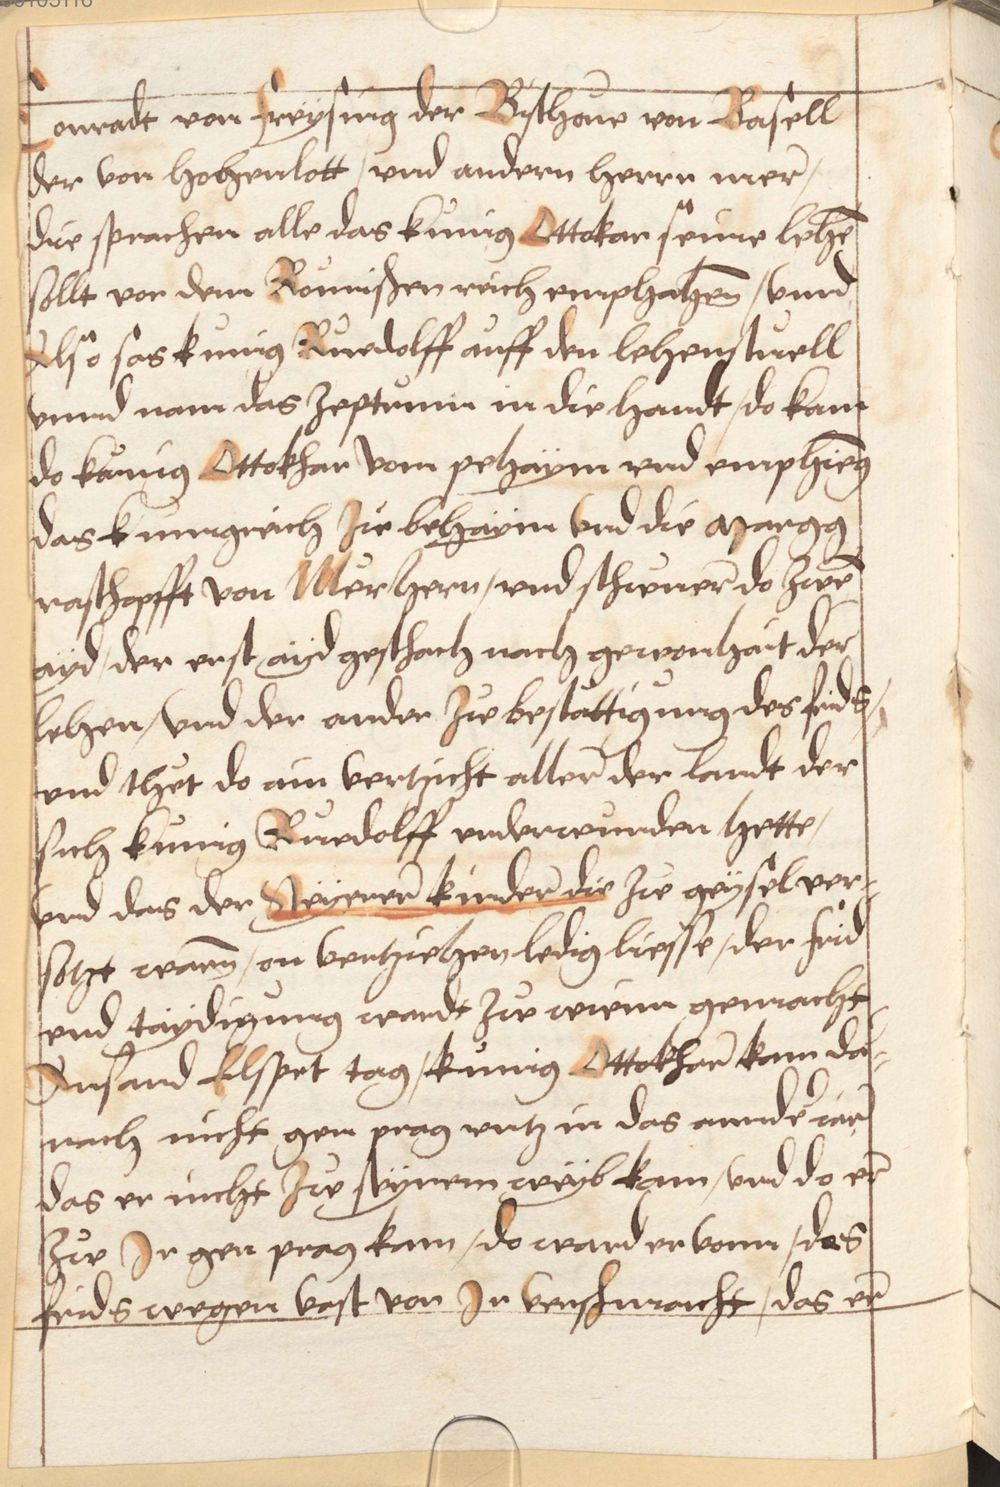 Conradt von freysing der Bischoue von Basell
der von hohenlott / vnd andern herrn mer /
die sprachen alle das kunig Ottokar seine lehē
sollt von dem Romischen reich emphahen̄ / vnnd
Also sas kunig Ruedolff auff den lehenstuell
vnnd nam das Zeptrum in die handt / do kam
do kunig Ottokhar vom pehaym vnd emphieng
das kunigreich zu behaym vnd die Margg
raschafft von Merhern / vnd schwuer do zwen̄
ayd / der erst ayd geschach nach gewonhait der
lehen / vnd der ander zu bestattigung des frids /
vnd thet do ain verzicht aller der landt der
sich kunig Ruedolff vnderwunden hette /
vnd das der Steyerer kinder die zu geysel ver-
sotzt waren̄ / on verziehen ledig liesse / der frid
vnd taydigung wardt zu wienn gemacht
Ansand Elspet tag / kunig Ottokhar kam da-
nach nicht gen prag vntz in das annder iar
das er nicht zu seynem weyb kam / vnd do er
zu Ir gen prag kam / do ward er vonn / des
frids wegen vast von Ir verschmacht / das er